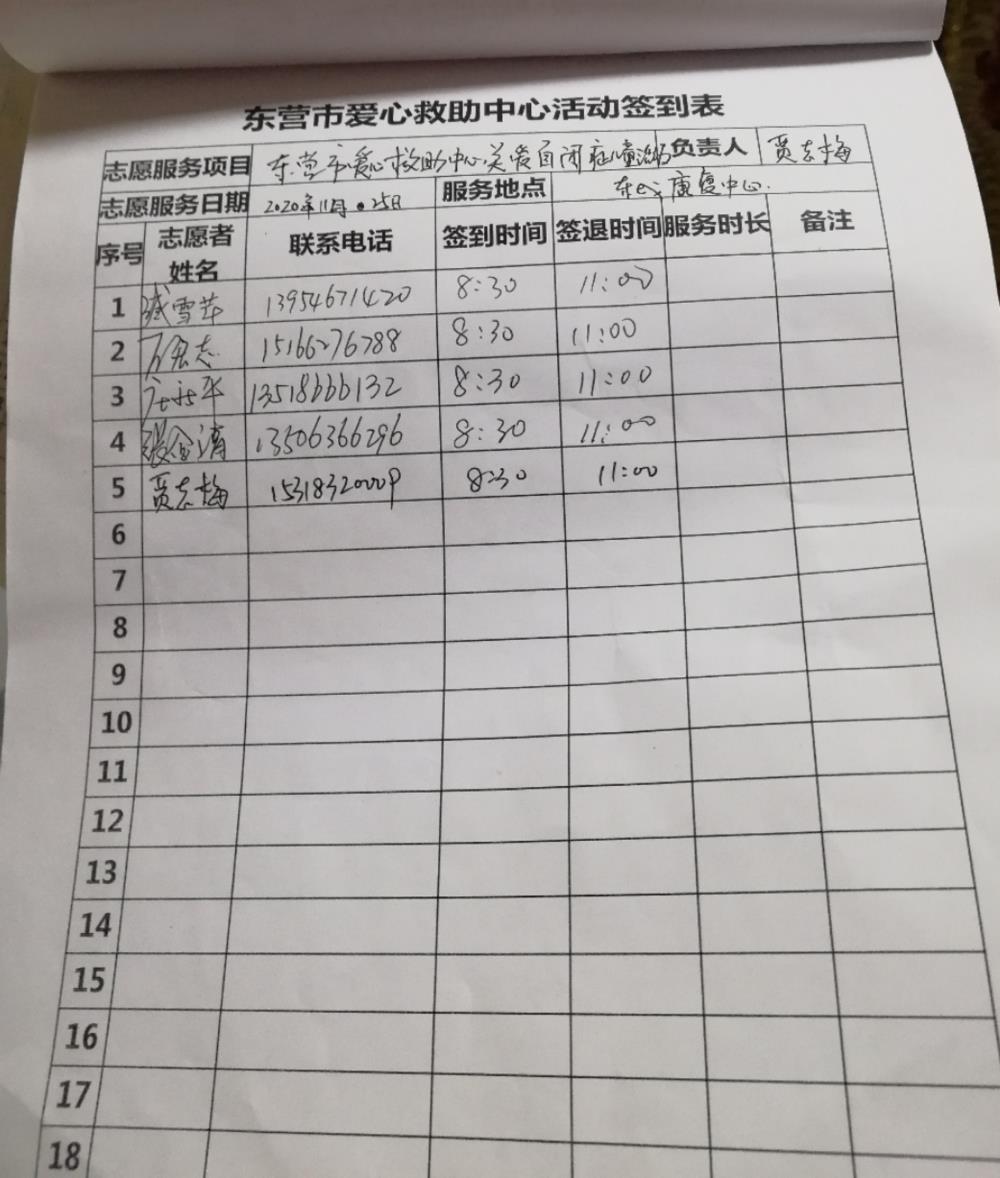 东营市爱心救助中心活动签到表
志愿服务项目 东营市爱心救助中心关爱自闭症儿童活动 负责人 贾志梅
志愿服务日期 2020年11月25日 服务地点 康复中心.
序号 志愿者姓名 联系电话 签到时间 签退时间 服务时长 备注
1 臧雪萍 13954671420 8:30 11:00
2 万宏志 15166276788 8:30 11:00
3 13518666132 8:30 11:00
4 张金清 13506366296 8:30 11:00
5 贾志梅 15318320009 8:30 11:00
6
7
8
9
10
11
12
13
14
15
16
17
18